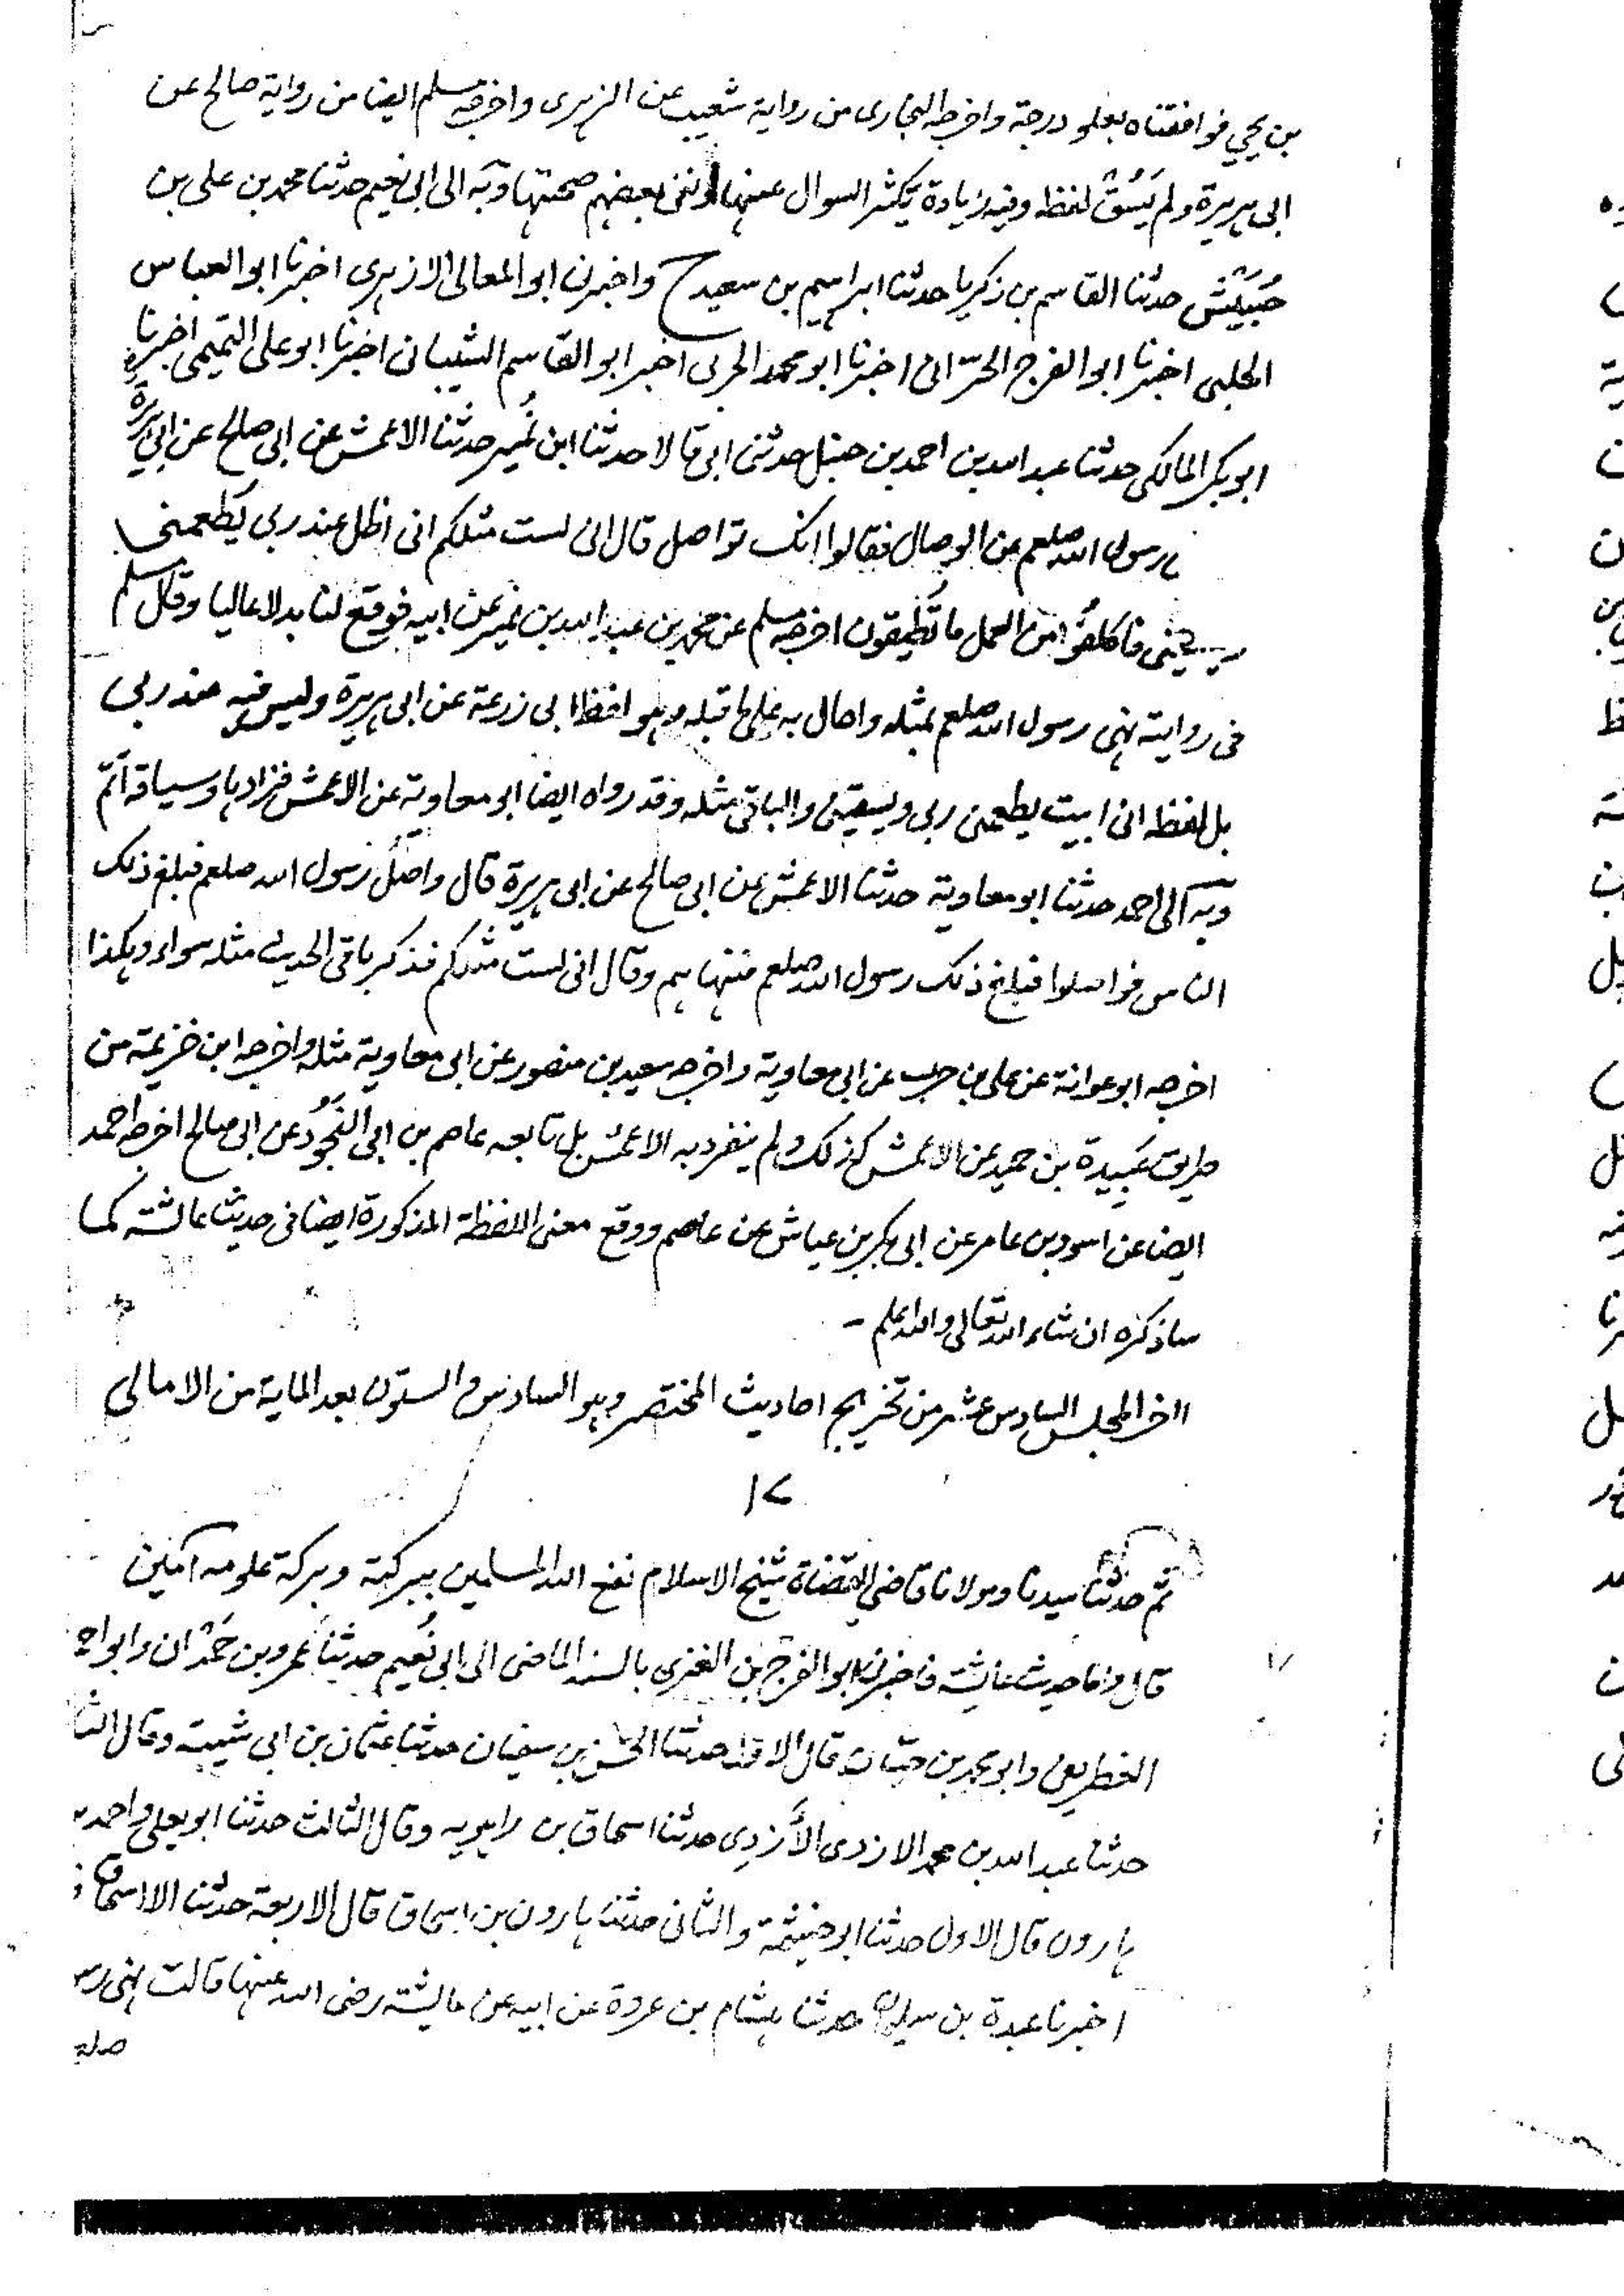 بن يحيي فوافقناه بعلو درجة واخرجه البخارى من رواية شعيب عن الزهرى واخرجه مسلم ايضا من رواية صالح عن
ابى هريرة ولم يَسُقْ لفظه وفيه زيادة يكثر السوال عنها ونفى بعضهم صحتها وبه الى ابى نعيم حدثنا محمد بن على بن
حُبَيْش حدثنا القاسم بن زكريا حدثنا ابراهيم بن سعيد ح واخبرنى ابو المعالى الازهرى اخبرنا ابو العباس
الحلبى اخبرنا ابو الفرج الحرّانى اخبرنا ابو محمد الحربى اخبر ابو القاسم الشيبانى اخبرنا ابو على التميمى اخبرنا
ابو بكر المالكى حدثنا عبد الله بن احمد بن حنبل حدثنى ابى قالا حدثنا ابن نُمير حدثنا الاعمش عن ابى صالح عن ابى هريرة
رسول الله صلعم عن الوصال فقالوا انك تواصل قال انى لست مثلكم انى اظل عند ربى يُطعمنى
فاكلفُوا من العمل ما تُطيقون اخرجه مسلم عن محمد بن عبد الله بن نمير عن ابيه فوقع لنا بدلا عاليا وقال مسلم
فى روايته نهى رسول الله صلعم بمثله واحال به على ما قبله وهو لفظ ابى زرعة عن ابى هريرة وليس فيه عند ربى
بل لفظه انى ابيت يطعمنى ربى ويسقينى والباقى مثله وقد رواه ايضا ابو معاوية عن الاعمش فزادها وسياقه اتمّ
وبه الى احمد حدثنا ابو معاوية حدثنا الاعمش عن ابى صالح عن ابى هريرة قال واصل رسول الله صلعم فبلغ ذلك
الناس فواصلوا فبلغ ذلك رسول الله صلعم فنهاهم وقال انى لست مثلكم فذكر باقى الحديث مثله سواء وهكذا
اخرجه ابو عوانة عن على بن حرب عن ابى معاوية واخرجه سعيد بن منصور عن ابى معاوية مثله واخرجه ابن خزيمة من
طريق عَبيدة بن حميد عن الاعمش كذلك ولم ينفرد به الاعمش بل تابعه عاصم بن ابى النَجُود عن ابى صالح اخرجه احمد
ايضا عن اسود بن عامر عن ابى بكر بن عياش عن عاصم ووقع معنى اللفظة المذكورة ايضا فى حديث عائشة كما
ساذكره ان شاء الله تعالى والله اعلم -
اخر المجلس السادس عشر من تخريج احاديث المختصر وهو السادس والستون بعد الماية من الامالى
١٧
ثم حدثنا سيدنا ومولانا قاضى القضاة شيخ الاسلام نفع الله المسلمين ببركته وبركة علومه آمين
قال واما حديث عايشة فاخبرنى ابو الفرج بن الغزى بالسند الماضى الى ابى نُعيم حدثنا عمرو بن حَمْدان وابو احمد
الغطريفى وابو محمد بن حيّان قال الاول حدثنا الحسن بن سفيان حدثنا عثمان بن ابى شيبة وقال الثا
حدثنا عبد الله بن محمد الازدى الأزدِى حدثنا اسحاق بن راهويه وقال الثالث حدثنا ابو يعلى واحمد
هارون قال الاول حدثنا ابو خيثمة والثانى حدثنا هارون بن اسحاق قال الاربعة حدثنا الا اسحاق
اخبرنا عبدة بن سليمان حدثنا هشام بن عروة عن ابيه عن عايشة رضى الله عنها قالت نهى رسو